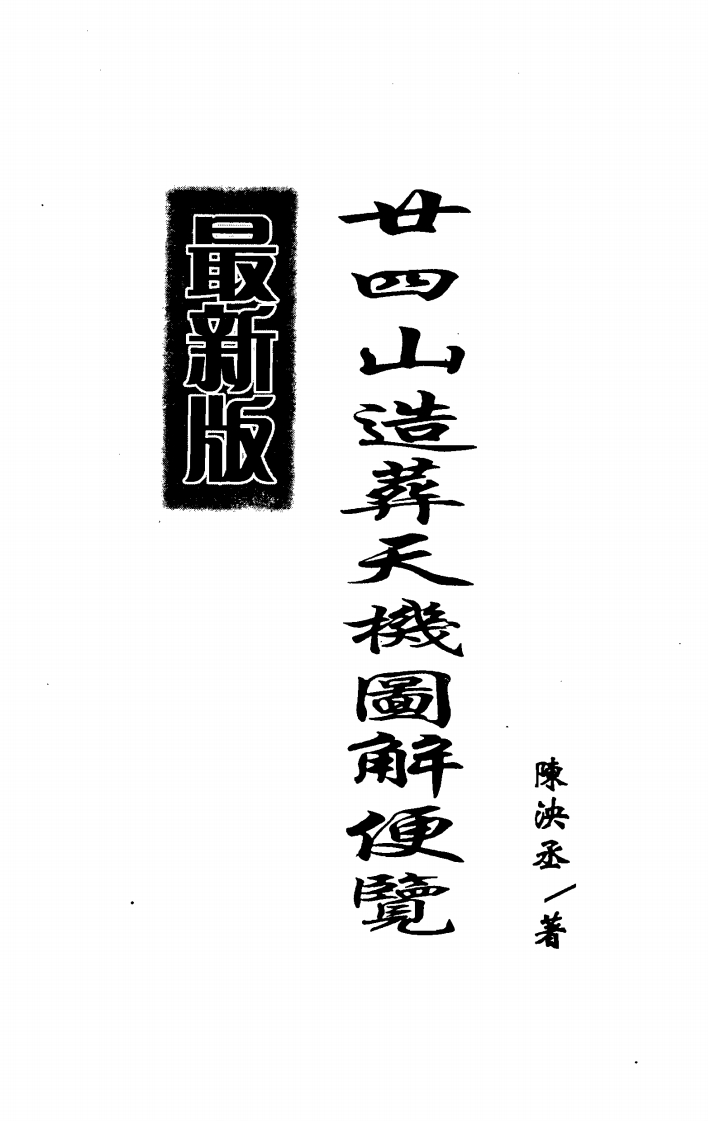 陳泱丞／著
廿四山造葬天機圖解便覽
最新版